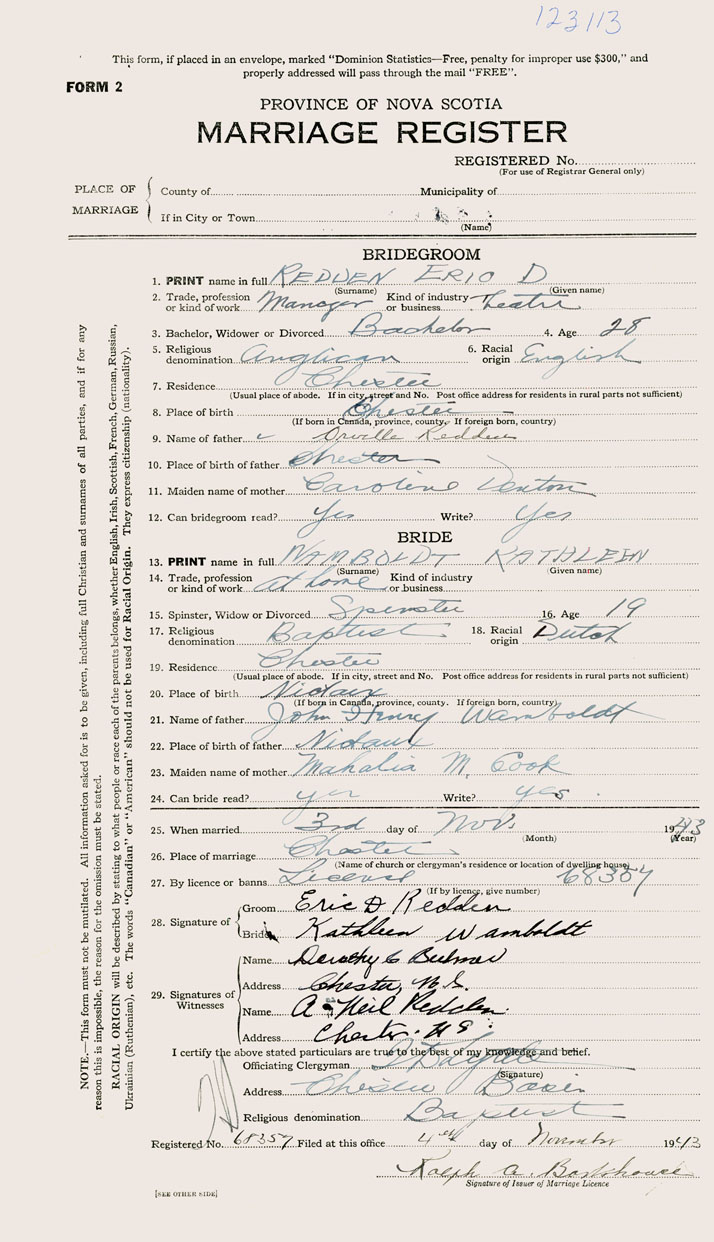 123113
This form, if placed in an envelope, marked "Dominion Statistics—Free, penalty for improper use $300," and
properly addressed will pass through the mail "FREE".
FORM 2
PROVINCE OF NOVA SCOTIA
MARRIAGE REGISTER
REGISTERED No.
(For use of Registrar General only)
PLACE OF MARRIAGE
County of Municipality of
If in City or Town
(Name)
BRIDEGROOM
1. PRINT name in full REDDEN ERIC D
(Surname) (Given name)
2. Trade, profession or kind of work Manager Kind of industry or business Theatre
3. Bachelor, Widower or Divorced Bachelor 4. Age 28
5. Religious denomination Anglican 6. Racial origin English
7. Residence Chester
(Usual place of abode. If in city, street and No. Post office address for residents in rural parts not sufficient)
8. Place of birth Chester
(If born in Canada, province, county. If foreign born, country)
9. Name of father Orville Redden
10. Place of birth of father Chester
11. Maiden name of mother Caroline Venton
12. Can bridegroom read? Yes Write? Yes
BRIDE
13. PRINT name in full WAMBOLDT KATHLEEN
(Surname) (Given name)
14. Trade, profession or kind of work at home Kind of industry or business
15. Spinster, Widow or Divorced Spinster 16. Age 19
17. Religious denomination Baptist 18. Racial origin Dutch
19. Residence Chester
(Usual place of abode. If in city, street and No. Post office address for residents in rural parts not sufficient)
20. Place of birth Nictaux
(If born in Canada, province, county. If foreign born, country)
21. Name of father John Henry Wamboldt
22. Place of birth of father Nictaux
23. Maiden name of mother Mahalia M. Cook
24. Can bride read? yes Write? yes
25. When married 3rd day of Nov. 1943
(Month) (Year)
26. Place of marriage Chester
(Name of church or clergyman's residence or location of dwelling house)
27. By licence or banns License 68357
(If by licence, give number)
28. Signature of
Groom Eric D Redden
Bride Kathleen Wamboldt
29. Signatures of Witnesses
Name Dorothy C Bulmer
Address Chester, N.S.
Name A. Neil Redden
Address Chester. N S.
I certify the above stated particulars are true to the best of my knowledge and belief.
Officiating Clergyman
(Signature)
Address Chester Basin
Religious denomination Baptist
Registered No. 68357 Filed at this office 4th day of November 1943
Ralph A. Barkhouse
Signature of Issuer of Marriage Licence
[SEE OTHER SIDE]
NOTE.—This form must not be mutilated. All information asked for is to be given, including full Christian and surnames of all parties, and if for any
reason this is impossible, the reason for the omission must be stated.
RACIAL ORIGIN will be described by stating to what people or race each of the parents belongs, whether English, Irish, Scottish, French, German, Russian,
Ukrainian (Ruthenian), etc. The words "Canadian" or "American" should not be used for Racial Origin. They express citizenship (nationality).